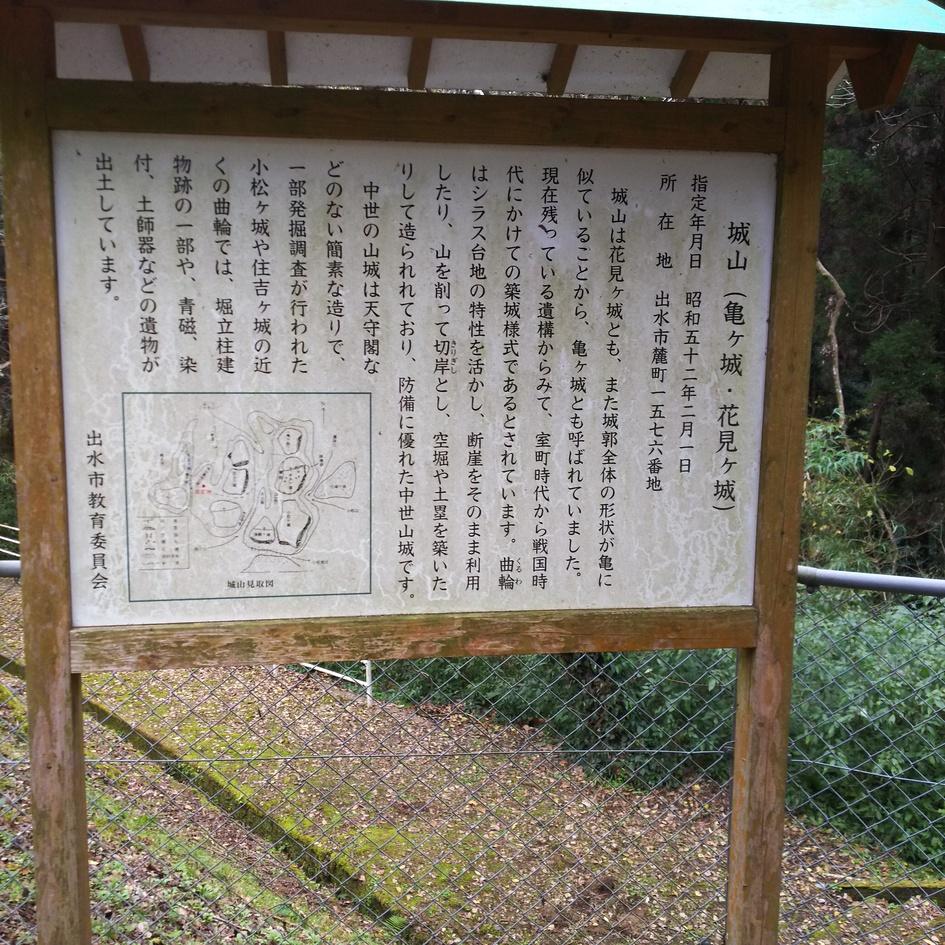 城山（亀ヶ城・花見ヶ城）
指定年月日　昭和五十二年二月一日
所在地　出水市麓町一五七六番地
城山は花見ヶ城とも、また城郭全体の形状が亀に
似ていることから、亀ヶ城とも呼ばれていました。
現在残っている遺構からみて、室町時代から戦国時
代にかけての築城様式であるとされています。曲輪
くるわ
はシラス台地の特性を活かし、断崖をそのまま利用
したり、山を削って切岸とし、空堀や土塁を築いた
きりぎし
りして造られており、防備に優れた中世山城です。
中世の山城は天守閣な
どのない簡素な造りで、
一部発掘調査が行われた
小松ヶ城や住吉ヶ城の近
くの曲輪では、堀立柱建
物跡の一部や、青磁、染
付、土師器などの遺物が
出土しています。
城山見取図
出水市教育委員会